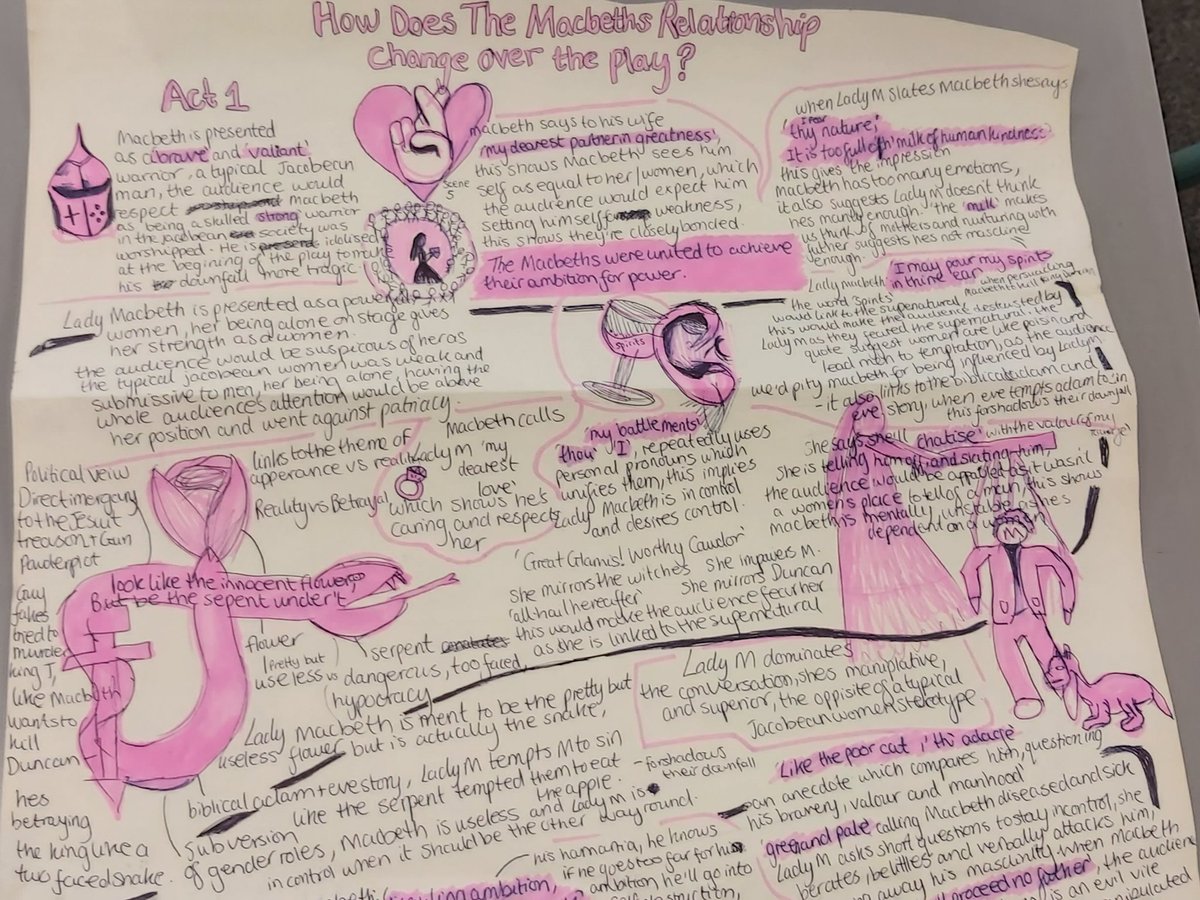 How Does The Macbeths Relationship
Change over the play?
Act 1
Macbeth is presented
as a 'brave' and 'valiant'
warrior, a typical Jacobean
man, the audience would
respect Macbeth
as being a skilled strong warrior
in the Jacobean society was
worshipped. He is idolised
at the begining of the play to make
his downfall more tragic
Scene
5
macbeth says to his wife
'my dearest partner in greatness',
this shows Macbeth sees him
self as equal to her/women, which
the audience would expect him
setting himself weakness,
this shows they're closely bonded.
The Macbeths were united to achieve
their ambition for power.
when Lady M slates Macbeth she says
'I fear
thy nature;
It is too full o'th' milk of human kindness.'
this gives the impression
Macbeth has too many emotions,
it also suggests Lady M doesn't think
hes manly enough. The 'milk' makes
us think of mothers and nurturing with
futher suggests hes not masculine
enough.
I may pour my spirits
in thine ear
Lady macbeth
when persuading
the word 'spirits'
would link to the supenatural,
this would make the audience destrusted by
Lady M as they feared the supernatural. The
quote suggest women are like poison and
lead men to temptation, as the audience
we'd pity macbeth for being influenced by Lady M
- it also links to the biblical adam and
eve story, when eve tempts adam to sin
this forshadows their downfall
Lady Macbeth is presented as a powerful
women, her being alone on stage gives
her strength as a women.
the audience would be suspicous of her as
the typical jacobean women was weak and
submissive to men, her being alone, having the
whole audience's attention would be above
her position and went against patriacy.
spirits
links to the theme of
apperance vs reality
Reality vs Betrayal
Macbeth calls
lady M 'my
dearest
love'
which shows he's
caring and respects
her
'my battlements'
'thou' 'I', repeatedly uses
personal pronouns which
unifies them, this implies
Lady Macbeth is in control
and desires control.
she says she'll 'chatise' with the valour of my
tounge
She is telling him off and slating him,
the audience would be appalled as it wasn't
a women's place to tell of a man, this shows
macbeth is mentally unstable as hes
dependent on a women
Political veiw
Direct
to the Jesuit
treason + Gun
Powder plot
Guy
fakes
tried to
murder
king J,
like Macbeth
wants to
kill
Duncan
hes
betraying
the king like a
two faced snake.
look like the innocent flower,
But be the sepent under't
flower
pretty but
useless
vs
serpent
dangerous, too faced,
hypocracy
'Great Glamis! Worthy Cawdor'
she mirrors the witches She impowers M.
'all-hail hereafter' She mirrors Duncan
this would make the audience fear her
as she is linked to the supernatural
Lady M dominates
the conversation, shes maniplative,
and superior, the opisite of a typical
Jacobean women steretype
Lady Macbeth is ment to be the pretty but
useless flower but is actually the snake,
biblical adam + eve story, Lady M tempts M to sin
like the serpent tempted them to eat
the apple.
- forshadows
their downfall
subversion
of gender roles, Macbeth is useless and Lady M is
in control when it should be the other way round.
M
'Like the poor cat i' th' adage'
an anecdote which compares him, questioning
his bravery, valour and manhood
'green and pale' calling Macbeth diseased and sick
Lady M asks short questions to stay in control, she
berates, belittles and verbally attacks him,
away his masculinity, when macbeth
proceed no futher', the audience
is an evil vile
his hamartia, he knows
if he goes too far for his
ambition he'll go into
ambition,